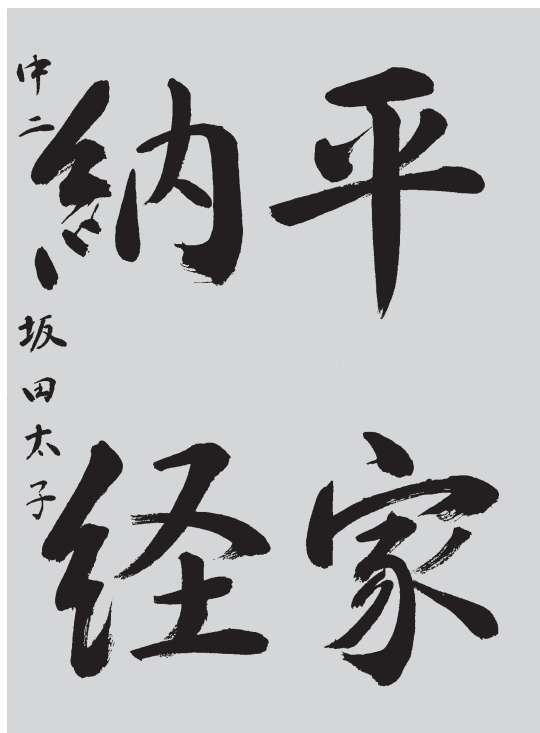 平家
納経
中二 坂田太子